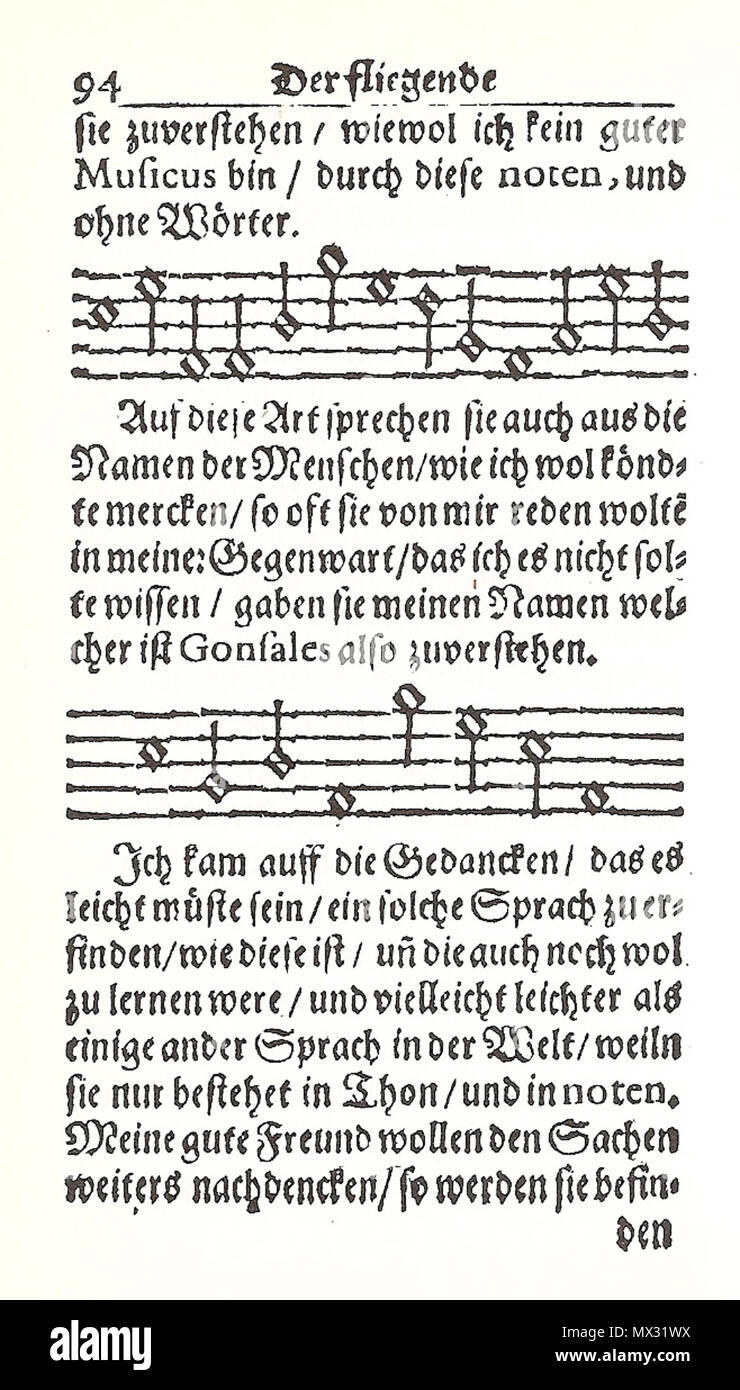 94 Der fliegende
sie zuverstehen / wiewol ich kein guter
Musicus bin / durch diese noten, und
ohne Wörter.
Auf diese Art sprechen sie auch aus die
Namen der Menschen/wie ich wol könd⸗
te mercken/ so oft sie von mir reden woltẽ
in meiner Gegenwart/das ich es nicht sol⸗
te wissen / gaben sie meinen Namen wel⸗
cher ist Gonsales also zuverstehen.
Ich kam auff die Gedancken/ das es
leicht müste sein/ein solche Sprach zu er⸗
finden/wie diese ist/ uñ die auch noch wol
zu lernen were/und vielleicht leichter als
einige ander Sprach in der Welt/weiln
sie nur bestehet in Thon/und in noten.
Meine gute Freund wollen den Sachen
weiters nachdencken/so werden sie befin⸗
den
a alamy
alamy
Image ID: MX31WX
www.alamy.com